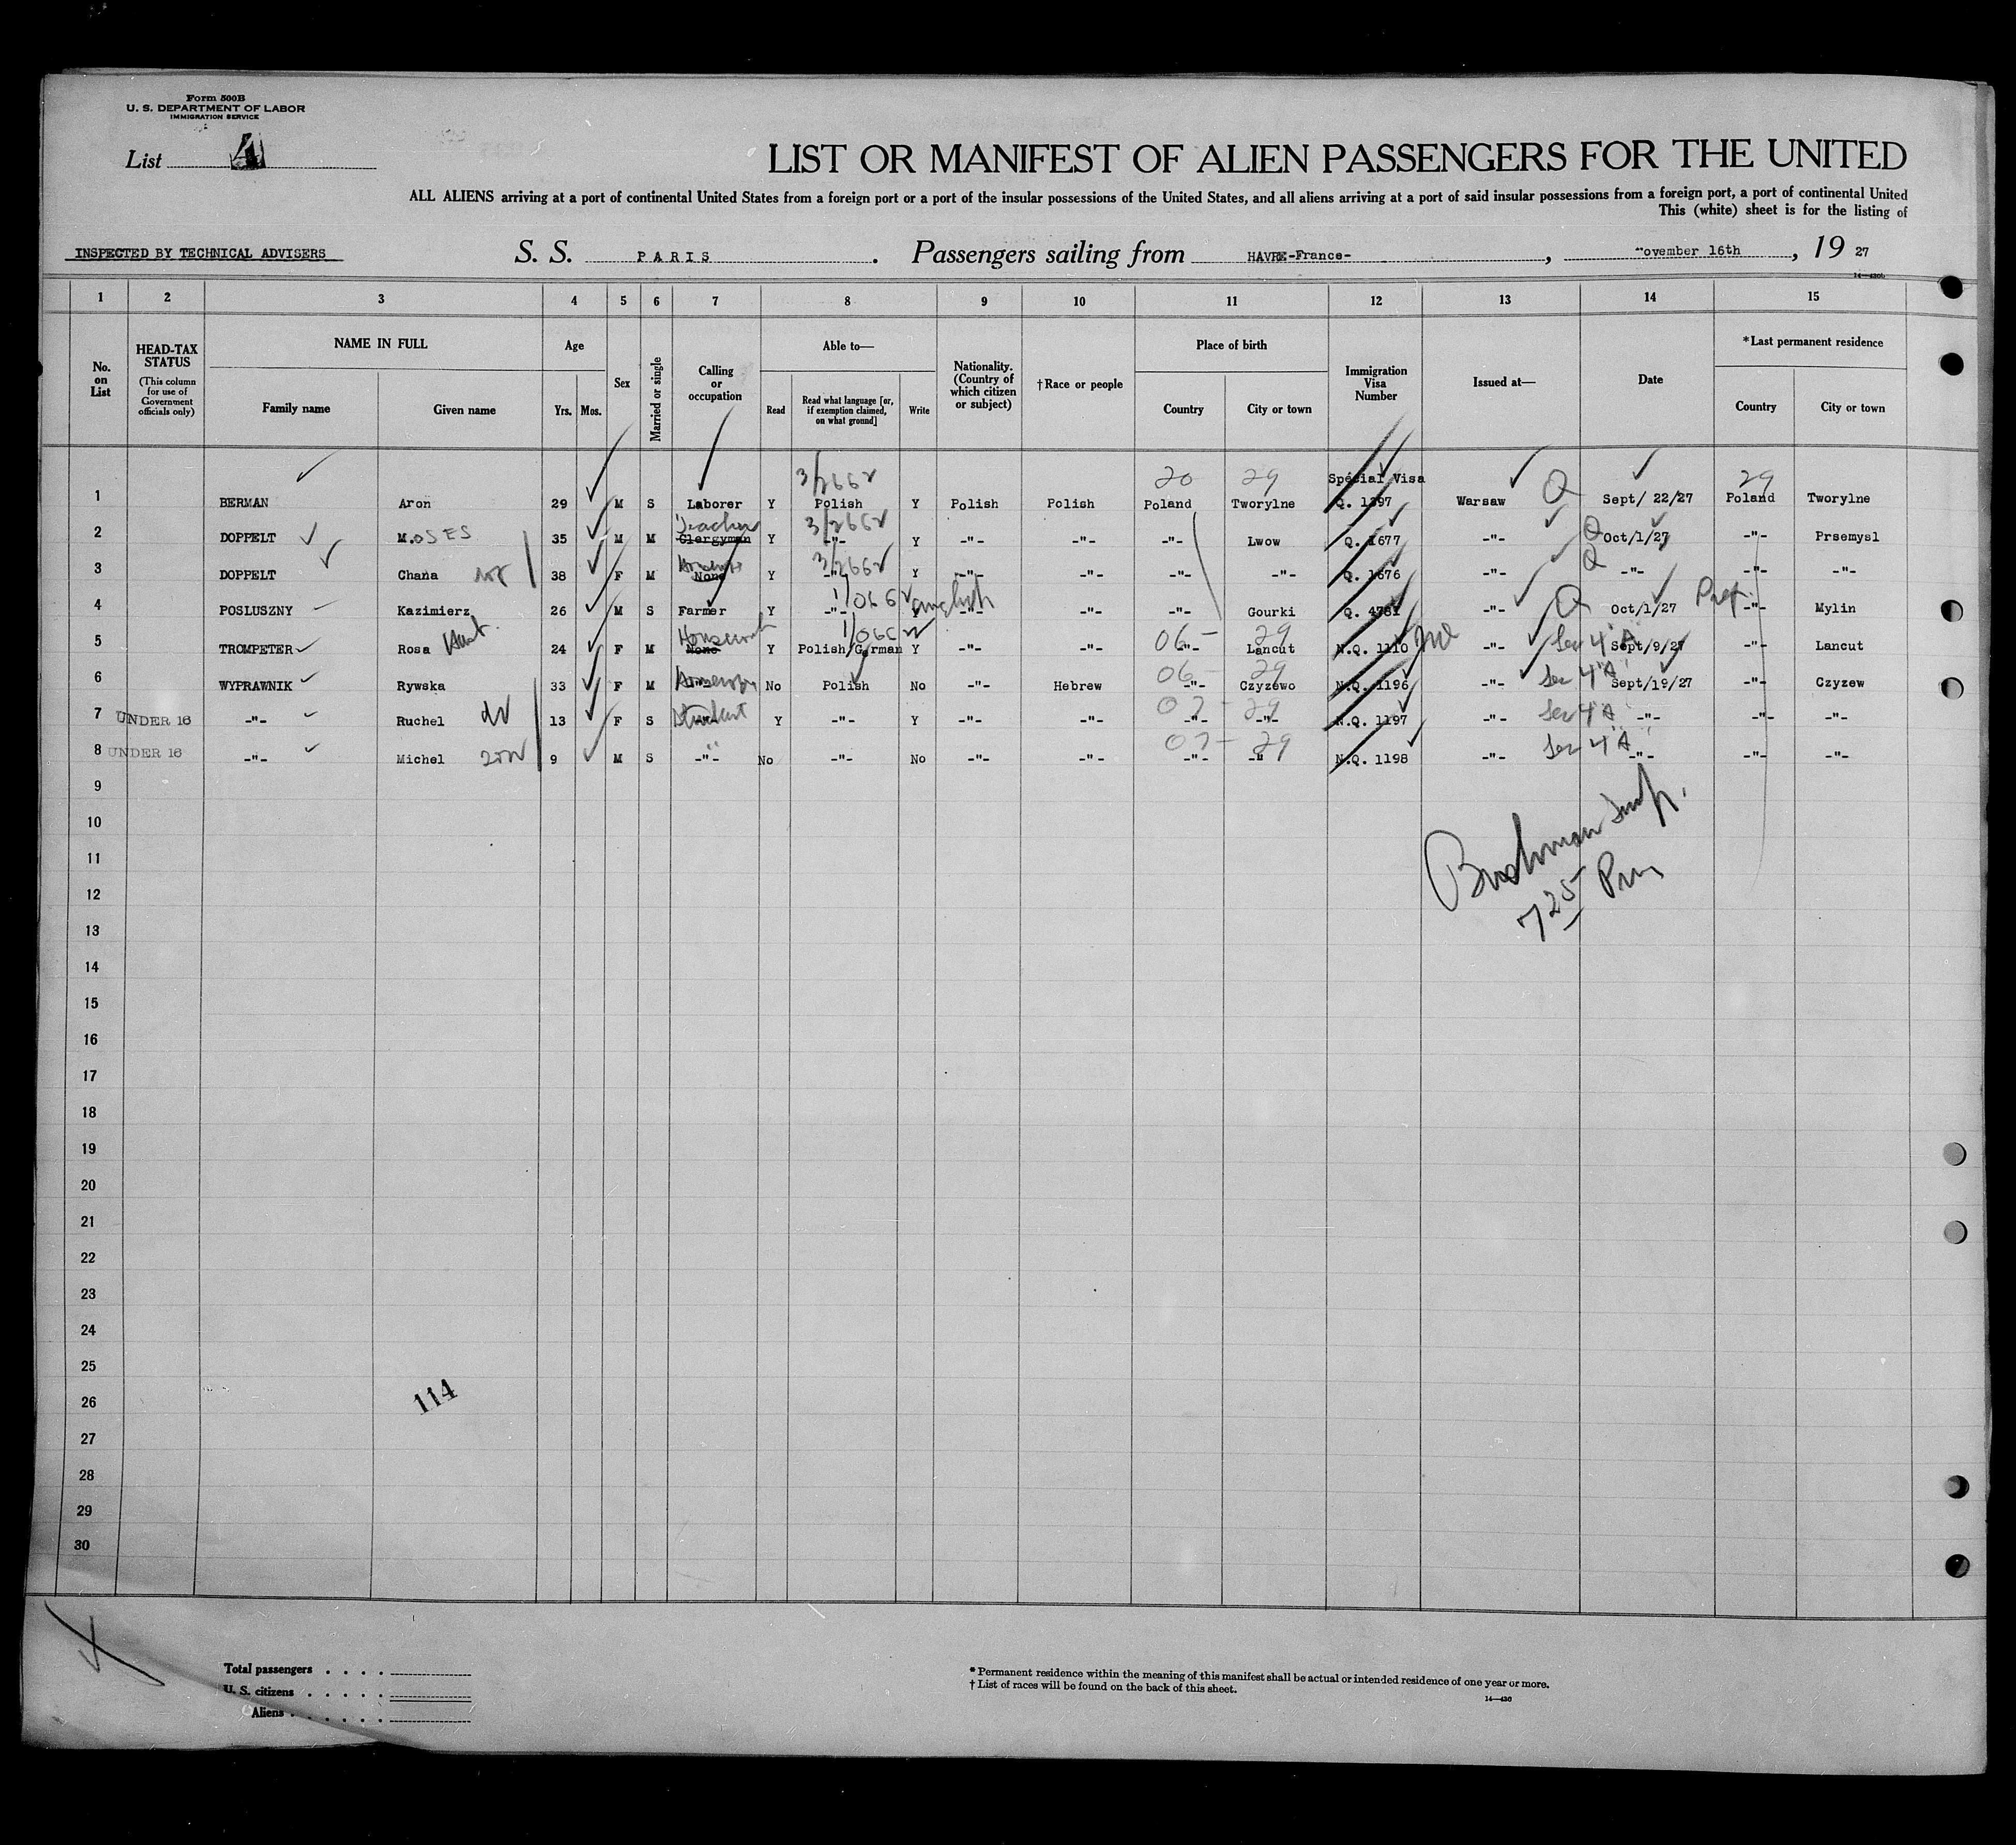 Form 500B
U. S. DEPARTMENT OF LABOR
IMMIGRATION SERVICE
List 4
LIST OR MANIFEST OF ALIEN PASSENGERS FOR THE UNITED
ALL ALIENS arriving at a port of continental United States from a foreign port or a port of the insular possessions of the United States, and all aliens arriving at a port of said insular possessions from a foreign port, a port of continental United
This (white) sheet is for the listing of
INSPECTED BY TECHNICAL ADVISERS S. S. PARIS . Passengers sailing from HAVRE-France- , ovember 16th , 19 27
1 2 3 4 5 6 7 8 9 10 11 12 13 14 15
No. on List
HEAD-TAX STATUS (This column for use of Government officials only)
NAME IN FULL
Family name Given name
Age
Yrs. Mos.
Sex
Married or single
Calling or occupation
Able to—
Read
Read what language [or, if exemption claimed, on what ground]
Write
Nationality. (Country of which citizen or subject)
†Race or people
Place of birth
Country City or town
Immigration Visa Number
Issued at—
Date
*Last permanent residence
Country City or town
3/2662 20 29 Special Visa 29
1 BERMAN Aron 29 M S Laborer Y Polish Y Polish Polish Poland Tworylne Q. 1397 Warsaw Q Sept/ 22/27 Poland Tworylne
Teacher 3/2662
2 DOPPELT M.OSES 35 M M Clergyman Y -"- Y -"- -"- -"- Lwow Q. 1677 -"- Q Oct/1/27 -"- Prsemysl
3/2662
3 DOPPELT Chana 38 F M None Y -"- Y -"- -"- -"- -"- Q. 1676 -"- Q -"- -"- -"-
1/0662 English
4 POSLUSZNY Kazimierz 26 M S Farmer Y -"- Y -"- -"- -"- Gourki Q. 4781 -"- Q Oct/1/27 Pref. -"- Mylin
Housework 06- 29
5 TROMPETER Rosa 24 F M None Y Polish/German Y -"- -"- -"- Lancut N.Q. 1110 -"- Sec 4"A" Sept/9/27 -"- Lancut
06- 29
6 WYPRAWNIK Rywska 33 F M -"- No Polish No -"- Hebrew -"- Czyzewo N.Q. 1196 -"- Sec 4"A" Sept/19/27 -"- Czyzew
07- 29
7 UNDER 16 -"- Ruchel 13 F S Student Y -"- Y -"- -"- -"- -"- N.Q. 1197 -"- Sec 4"A" -"- -"- -"-
07- 29
8 UNDER 16 -"- Michel 9 M S -"- No -"- No -"- -"- -"- -"- N.Q. 1198 -"- Sec 4"A" -"- -"- -"-
9
10
11
12
13
14
15
16
17
18
19
20
21
22
23
24
25
26
27
28
29
30
Insp.
725 Pm
114
Total passengers . . . .
U. S. citizens . . . . .
Aliens . . . . . .
* Permanent residence within the meaning of this manifest shall be actual or intended residence of one year or more.
† List of races will be found on the back of this sheet.
14—430